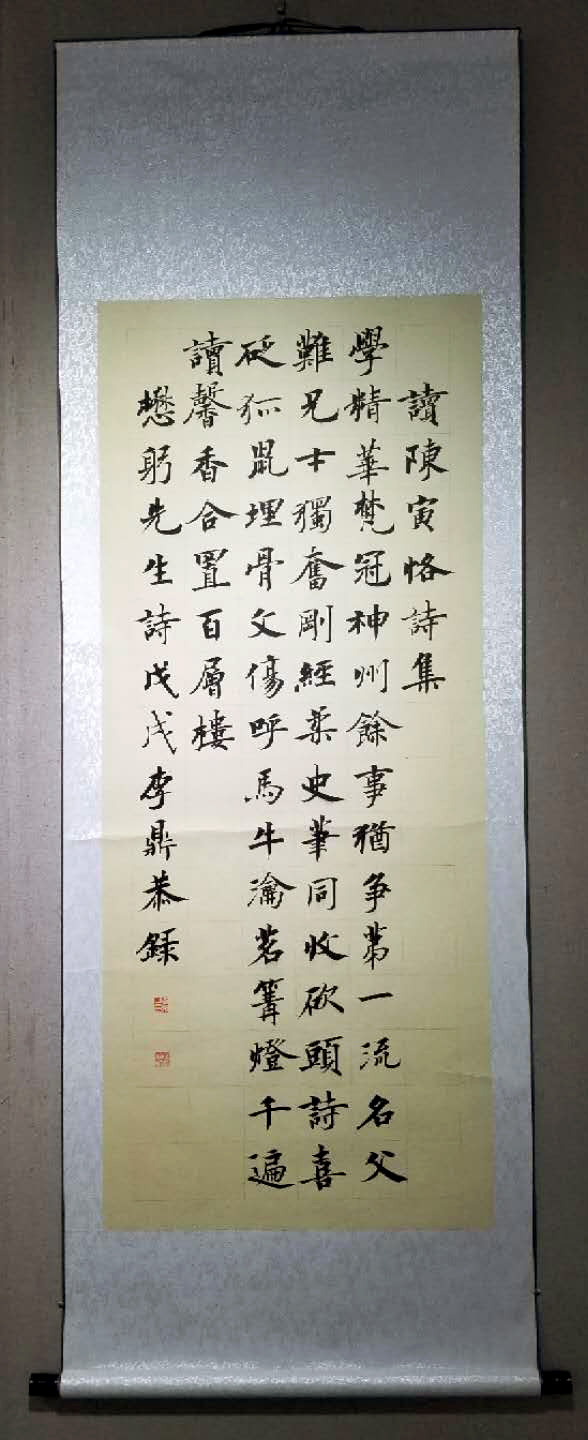 讀陳寅恪詩集
學精華梵冠神州餘事猶争第一流名父
難兄才獨奮剛經柔史筆同收砍頭詩喜
砭狐鼠埋骨文傷呼馬牛瀹茗篝燈千遍
讀馨香合置百層樓
懋躬先生詩戊戌李鼎恭錄